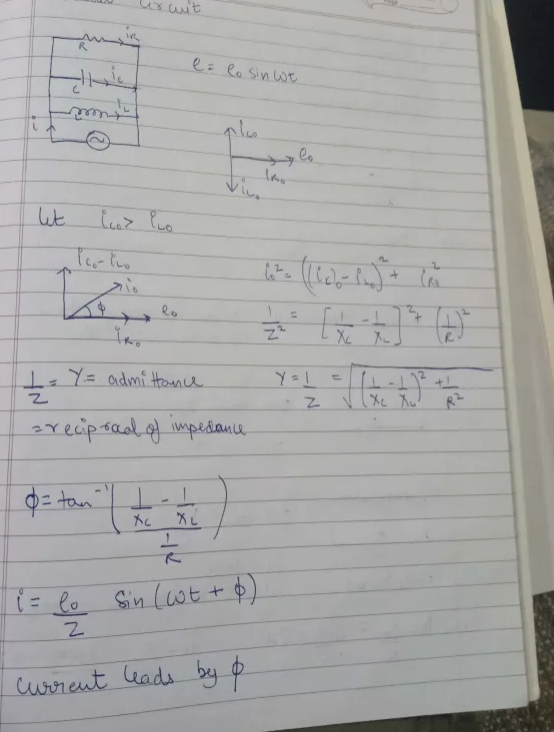 circuit
R iR
C iC
iL
i
e = e₀ sin ωt
iC₀
e₀
iR₀
iL₀
let iC₀ > iL₀
iC₀ - iL₀
i₀
ϕ e₀
iR₀
i₀² = ((iC)₀ - iL₀)² + iR₀²
1/Z² = [1/XC - 1/XL]² + (1/R)²
1/Z = Y = admittance
= reciprocal of impedance
Y = 1/Z = √((1/XC - 1/XL)² + 1/R²)
ϕ = tan⁻¹((1/XC - 1/XL)/(1/R))
i = e₀/Z sin(ωt + ϕ)
current leads by ϕ